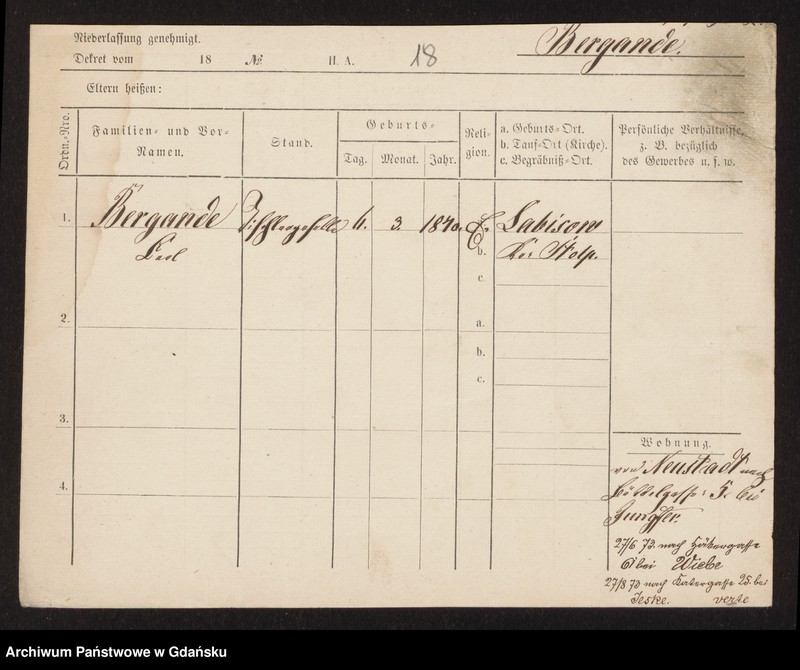 Niederlassung genehmigt.
Dekret vom 18 № H. A. 18
Bergande.
Eltern heißen:
Ordn.-Nro.
Familien- und Vor-Namen.
Stand.
Geburts-
Tag. Monat. Jahr.
Religion.
a. Geburts-Ort.
b. Tauf-Ort (Kirche).
c. Begräbniß-Ort.
Persönliche Verhältnisse,
z. B. bezüglich
des Gewerbes u. s. w.
1. Bergande Tischlergeselle 6. 3. 1840. E. Labisow
Carl b. Kr. Stolp.
c
2. a.
b.
c.
3.
4.
Wohnung.
von Neustadt nach
5. bei
Jungfer.
27/6 73. nach Häkergasse
6 bei Wiebe
27/8 73 nach Katergasse 25. bei
Jeske. verte
Archiwum Państwowe w Gdańsku